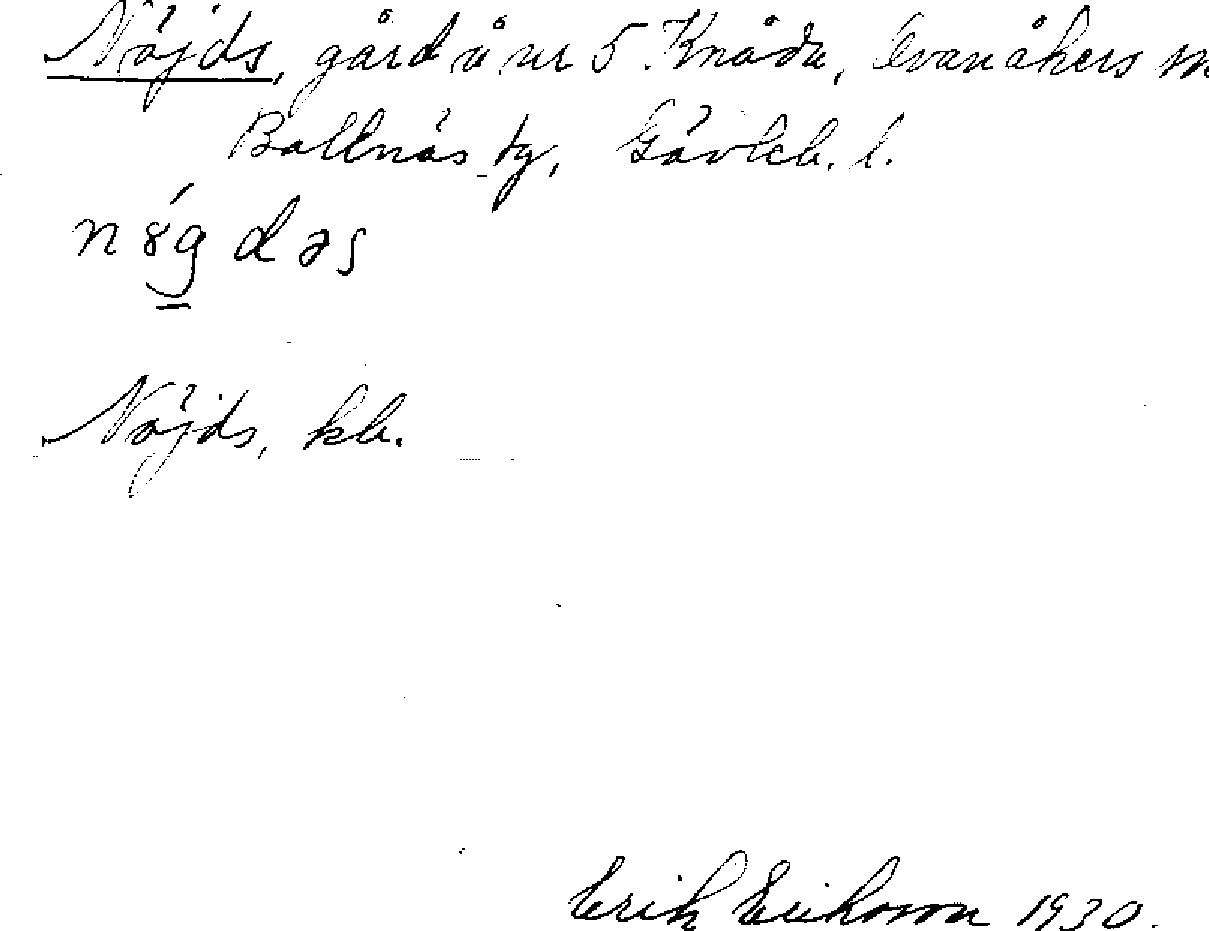 Nöjds, gård å nr 5 Knåda, Ovanåkers
Bollnäs tg, Gävleb. l.
Nöjds, kb.
Erik Eriksson 1930.